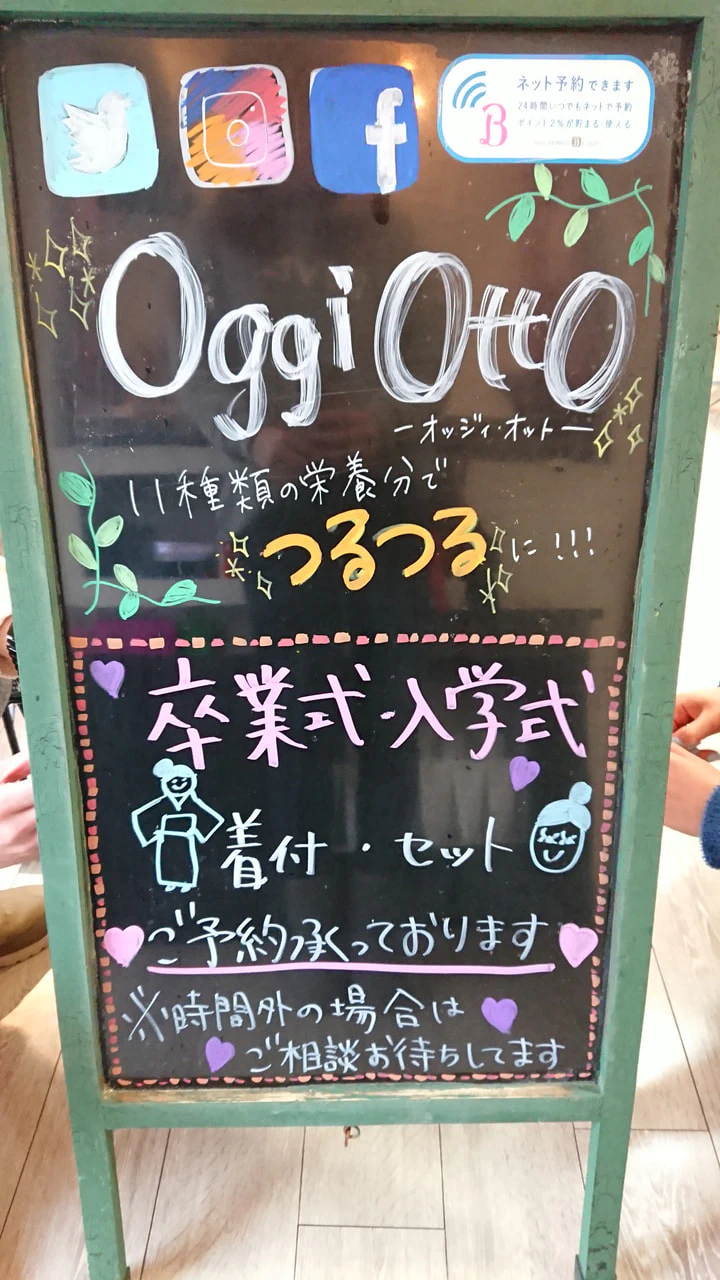 ネット予約できます
24時間いつでもネットで予約
ポイント2%が貯まる・使える
B
f
Oggi Otto
ーオッジィ・オットー
11種類の栄養分で
つるつるに!!!
卒業式・入学式
着付・セット
ご予約承っております
※時間外の場合は
ご相談お待ちしてます